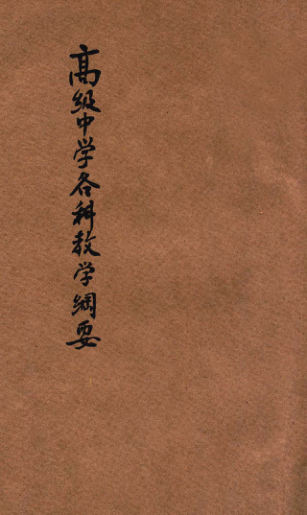 高级中学各科教学纲要